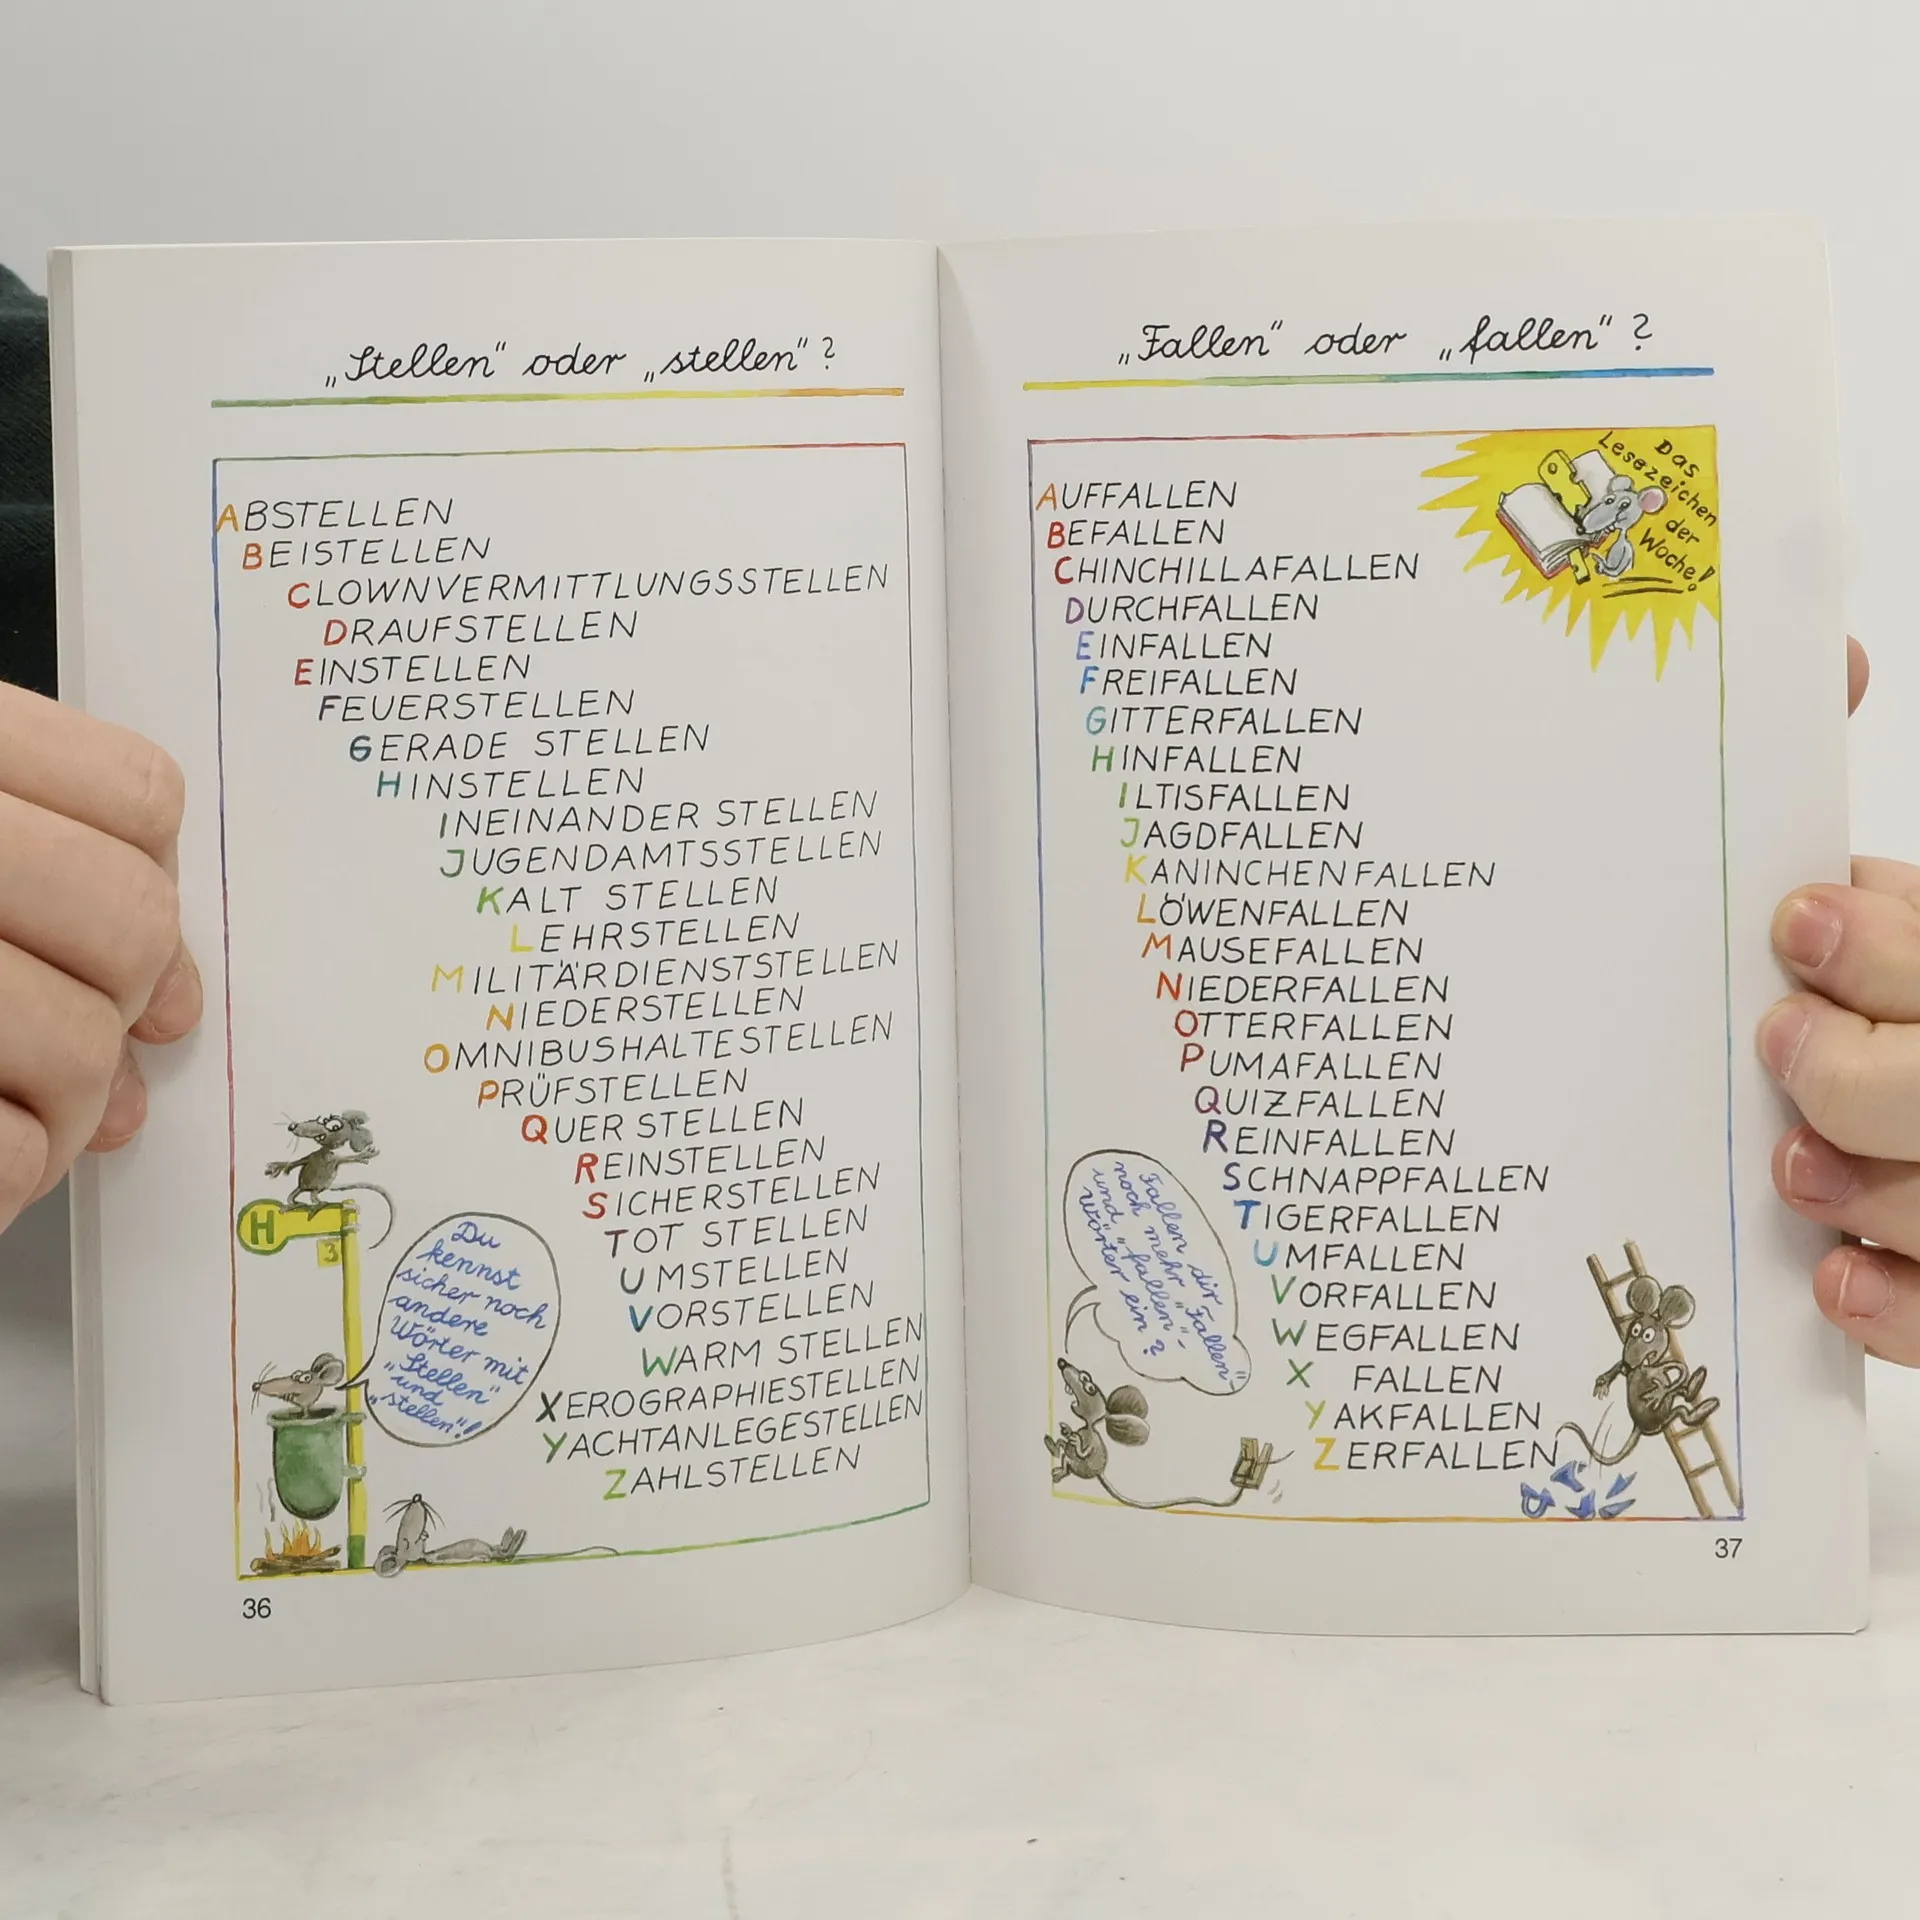 „Stellen“ oder „stellen“?
ABSTELLEN
BEISTELLEN
CLOWNVERMITTLUNGSSTELLEN
DRAUFSTELLEN
EINSTELLEN
FEUERSTELLEN
GERADE STELLEN
HINSTELLEN
INEINANDER STELLEN
JUGENDAMTSSTELLEN
KALT STELLEN
LEHRSTELLEN
MILITÄRDIENSTSTELLEN
NIEDERSTELLEN
OMNIBUSHALTESTELLEN
PRÜFSTELLEN
QUER STELLEN
REINSTELLEN
SICHERSTELLEN
TOT STELLEN
UMSTELLEN
VORSTELLEN
WARM STELLEN
XEROGRAPHIESTELLEN
YACHTANLEGESTELLEN
ZAHLSTELLEN
H
3
Du
kennst
sicher noch
andere
Wörter mit
„Stellen“
und
„stellen“!
36
„Fallen“ oder „fallen“?
Das
Lesezeichen
der
Woche!
AUFFALLEN
BEFALLEN
CHINCHILLAFALLEN
DURCHFALLEN
EINFALLEN
FREIFALLEN
GITTERFALLEN
HINFALLEN
ILTISFALLEN
JAGDFALLEN
KANINCHENFALLEN
LÖWENFALLEN
MAUSEFALLEN
NIEDERFALLEN
OTTERFALLEN
PUMAFALLEN
QUIZFALLEN
REINFALLEN
SCHNAPPFALLEN
TIGERFALLEN
UMFALLEN
VORFALLEN
WEGFALLEN
X FALLEN
YAKFALLEN
ZERFALLEN
Fallen dir
noch mehr „Fallen“-
und „fallen“-
Wörter ein?
37